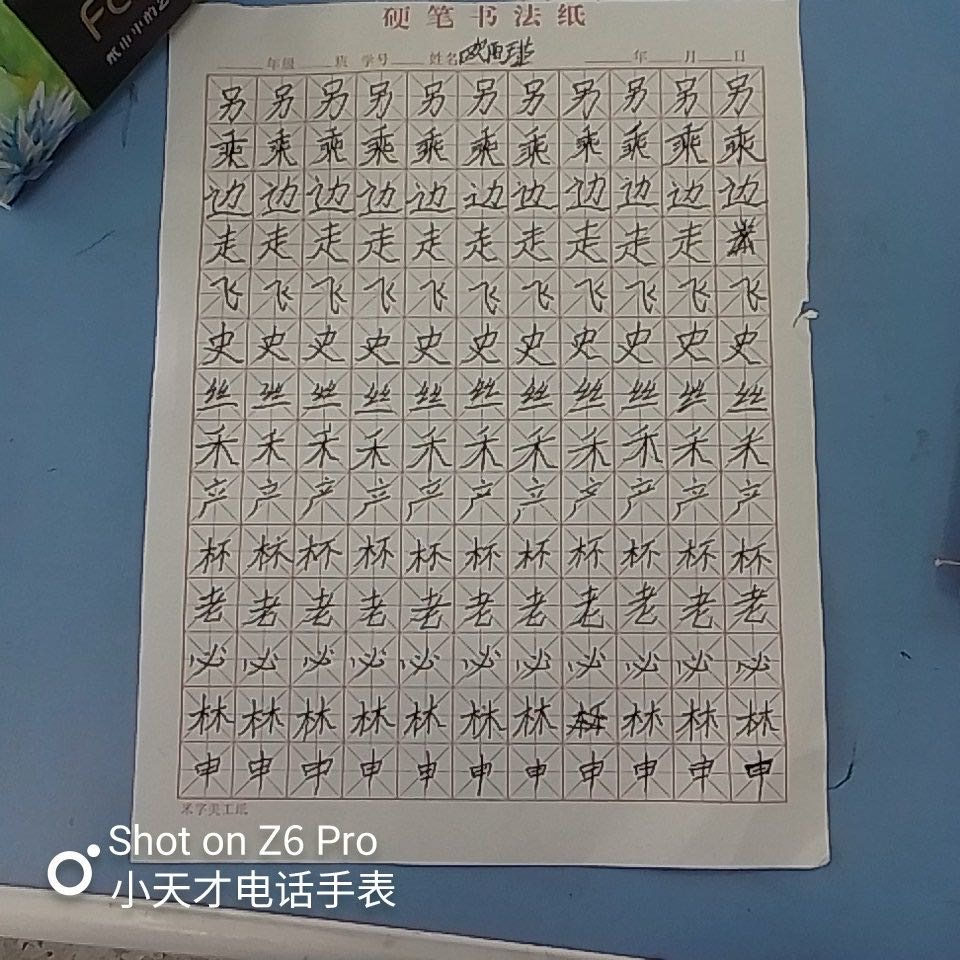 硬笔书法纸
年级 班 学号 姓名 年 月 日
另另另另另另另另另另另
乘乘乘乘乘乘乘乘乘乘乘
边边边边边边边边边边边
走走走走走走走走走走
飞飞飞飞飞飞飞飞飞飞飞
史史史史史史史史史史史
丝丝丝丝丝丝丝丝丝丝丝
禾禾禾禾禾禾禾禾禾禾禾
产产产产产产产产产产产
杯杯杯杯杯杯杯杯杯杯杯
老老老老老老老老老老老
必必必必必必必必必必必
林林林林林林林林林林林
申申申申申申申申申申申
米字美工纸
Shot on Z6 Pro
小天才电话手表